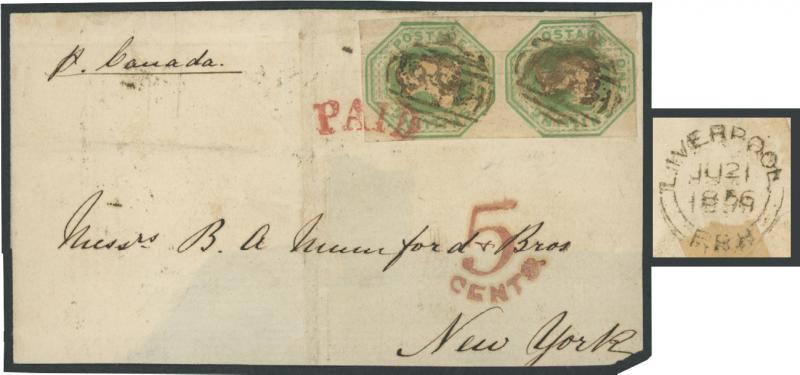 p. Canada.
POSTAGE ONE
POSTAGE ONE
PAID
5
CENTS
Messrs B. A Mumford & Bros
New York
LIVERPOOL
JU 21
1856